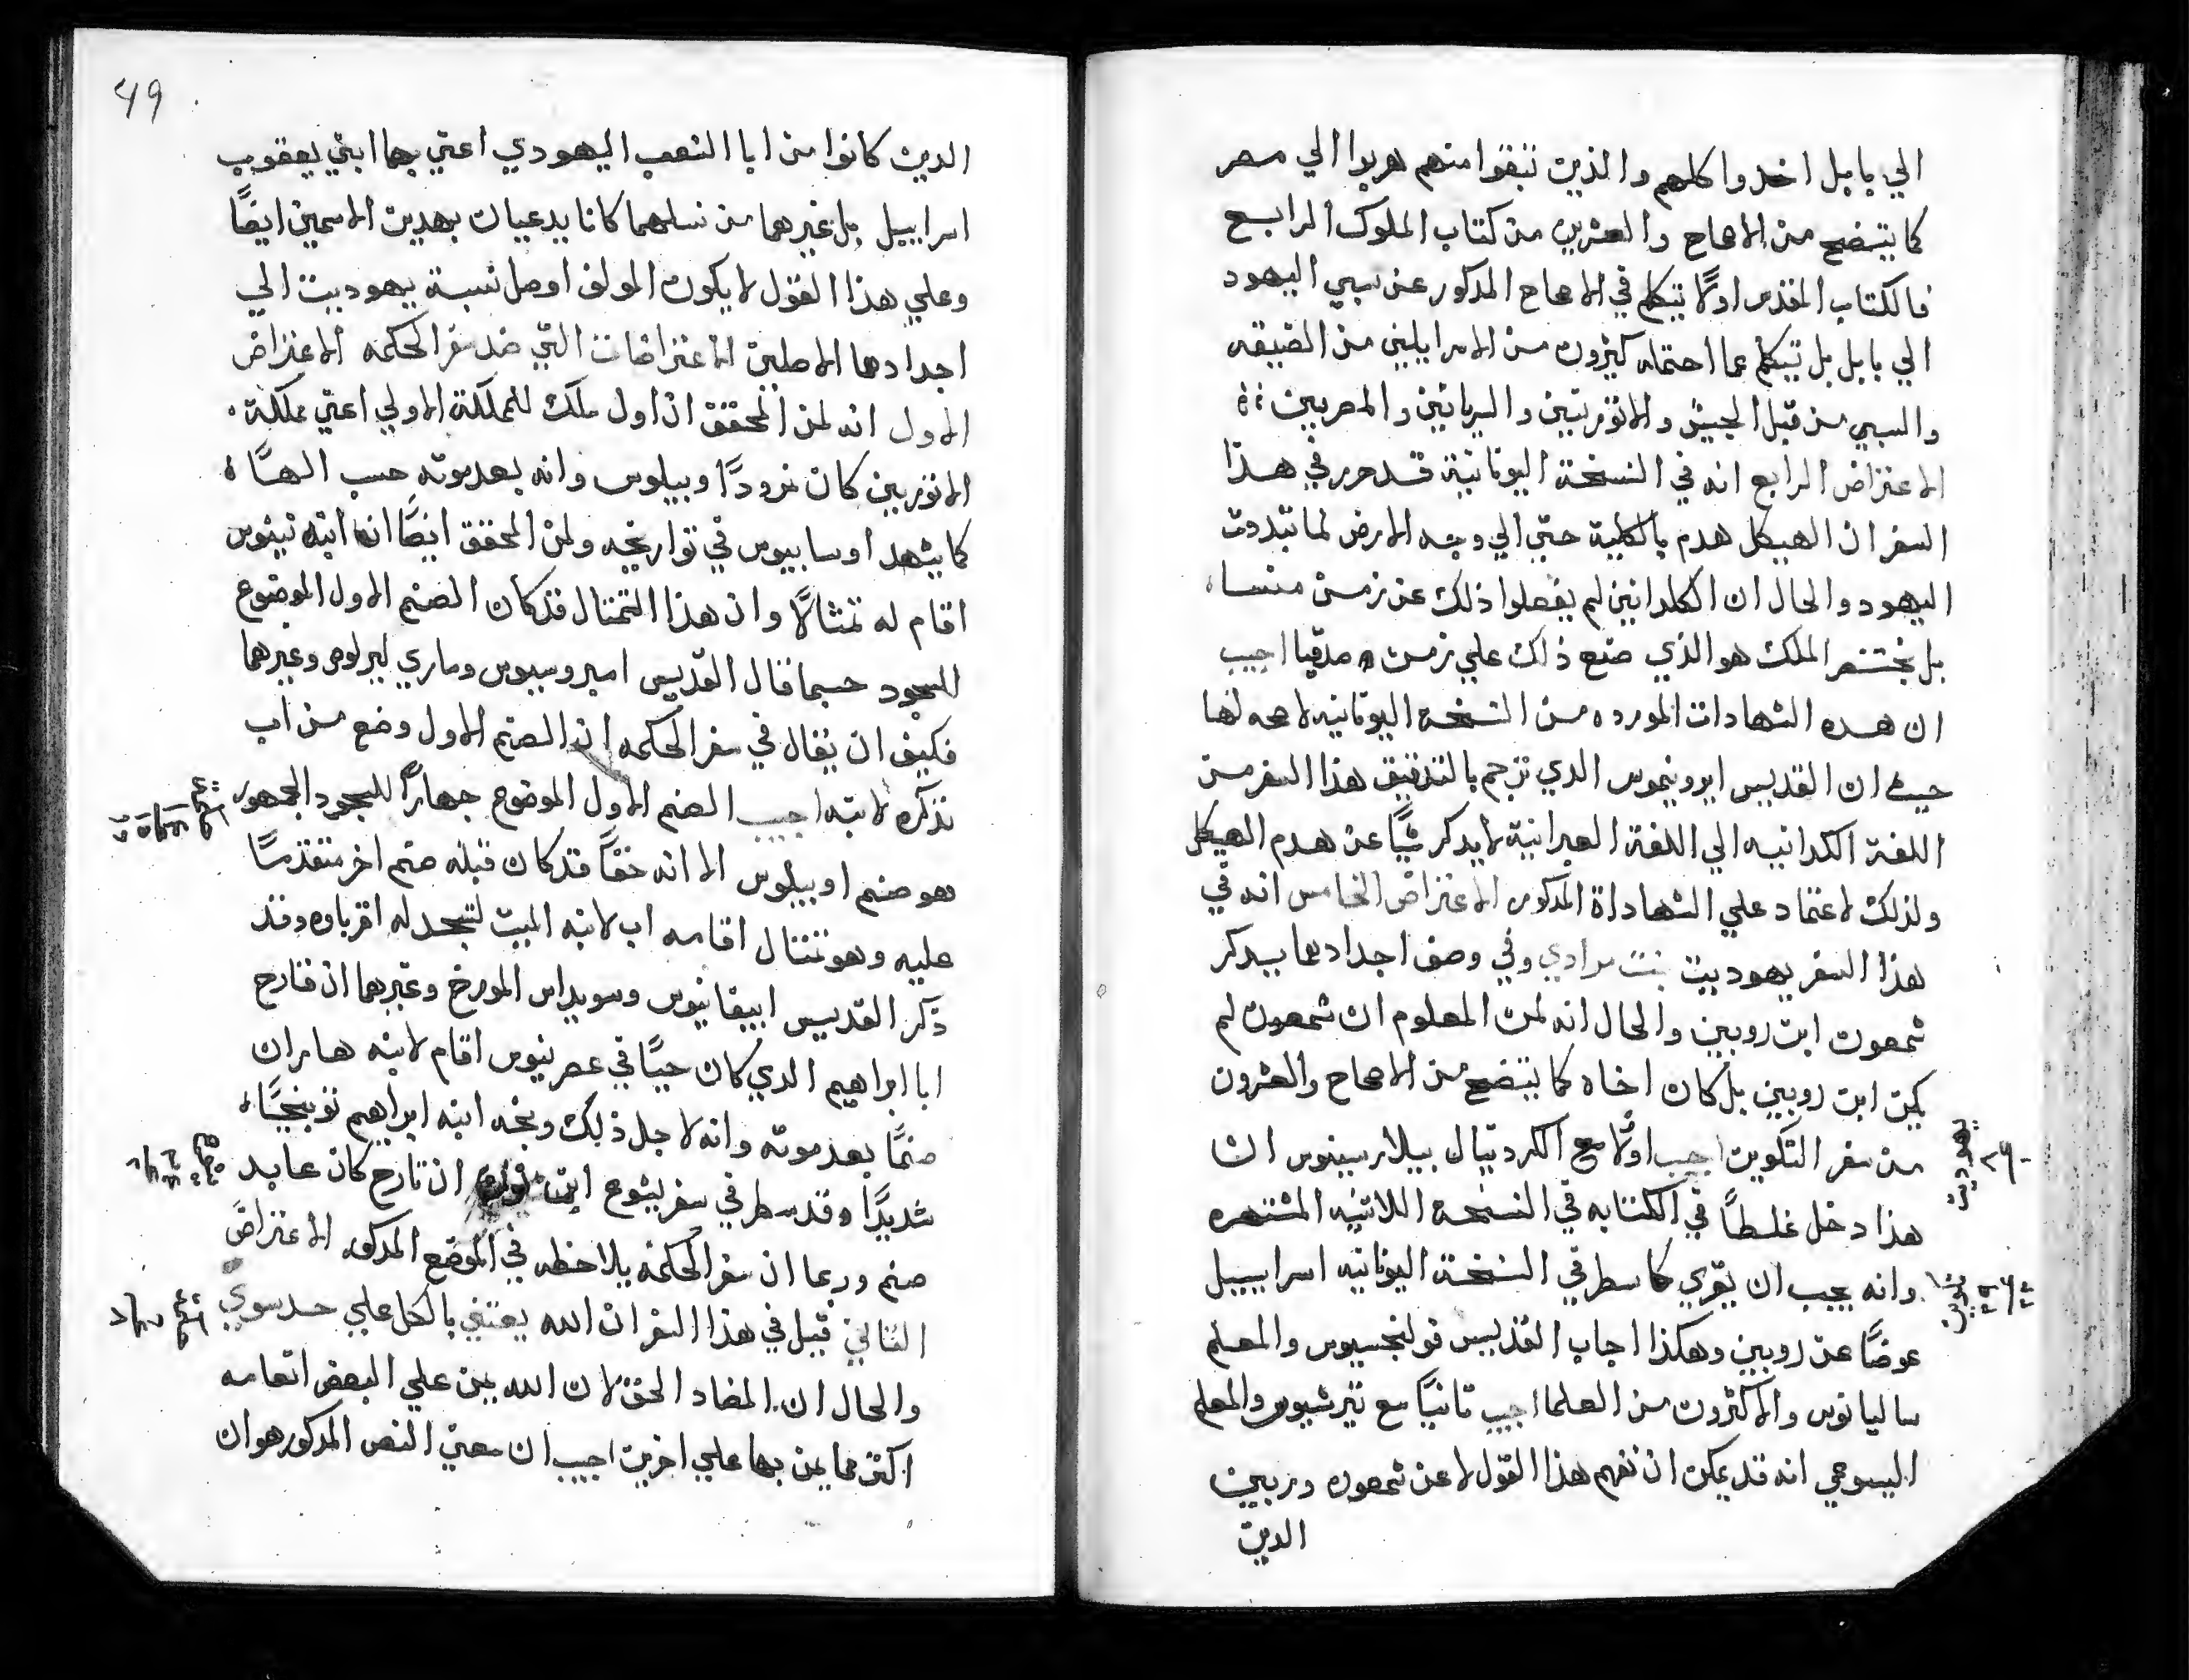 الي بابل اخدوا كلهم والذين تبقوا منهم هربوا الي مصر
كما يتضح من الاصحاح والعشرين من كتاب الملوك الرابع
فالكتاب المقدس اولًا تيكلم في الاصحاح المدكور عن سبي اليهود
الي بابل بل تيكلم عما احتمله كثيرون من الاسراييلين من الضيقه
والسبي من قبل الجيش والاثوريين والسريانين والمصريين
الاعتراض الرابع انه في النسخة اليونانية قد حرر في هذا
السفر ان الهيكل هدم بالكلية حتي الي وجه الارض لما تبددوت
اليهود والحال ان الكلدانين لم يفعلوا ذلك عن زمن منسا
بل بختنصر الملك هو الذي صنع ذلك علي زمن صدقيا اجيب
ان هده الشهادات الموردِه من النسخه اليونانيه لا صحه لها
حيث ان القديس ايرونيموس الدي ترجم بالتدقيق هذا السفر من
اللغة الكلدانيه الي اللغة العبرانية لا يدكر شيًا عن هدم الهيكل
ولذلك لا عتماد علي الشهاداة المدكوره الاعتراض الخامس انه في
هذا السفر يهوديت بنت مراري وفي وصف اجدادها يبدكر
شمعون ابن روبين والحال انه لمن المعلوم ان شمعون لم
يكن ابن روبين بل كان اخاه كما يتضح من الاصحاح والعشرون
من سفر التكوين اجيب اولًا مع الكردينال بيلارمينوس ان
هذا دخل غلطًا في الكتابه في النسخة اللاتنيه المشتهره
وانه يجب ان يقري كما سطر في النسخة اليونانيه اسراييل
عوضًا عن روبين وهكذا اجاب القديس فولنجسيوس والمعلم
ساليانوس والاكثرون من العلما اجيب ثانيًا مع تيرشيوس والمعلم
اليسوعي انه قد يمكن ان نفهم هذا القول لا عن شمعون وربين
الدين
يهوديت
تكوين
49
الدين كانوا من ابا الشعب اليهودي اعني بهما ابني يعقوب
اسراييل بل غيرهما من نسلهما كانا يدعيان بهدين الاسمين ايضًا
وعلي هذا القول لا يكون المولف اوصل نسبة يهوديت الي
اجدادها الاصلين الاعتراضات التي ضد سفر الحكمه الاعتراض
الاول انه لمن المحقق ان اول ملك للمملكة الاولي اعني مملكة
الاثوريين كان نمرودًا وبيلوس وانه بعد موته حسب الهًا
كما يشهد اوسابيوس في تواريخه ولمن المحقق ايضًا ان ابنه نينوس
اقام له تمثالًا وان هذا التمثال قد كان الصنم الاول الموضوع
للسجود حسبما قال القديس امبروسيوس وماري كيرلوس وغيرهما
فكيف ان يقال في سفر الحكمه ان الصنم الاول وضع من اب
تذكره لابنه اجيب الصنم الاول الموضوع جهارًا للسجود الجمهور
هو صنم اوبيلوس الا انه حقًا قد كان قبله صنم اخر متقدمًا
عليه وهو تمثال اقامه اب لابنه الميت لتسجد له اقرباوه وقد
ذكر القديس ابيفانيوس وسويداس المورخ وغيرهما ان تارح
ابا ابراهيم الدي كان حيًا في عصر نينوس اقام لابنه هاران
صنمًا بعد موته وانه لاجل ذلك وبخه ابنه ابراهيم توبيخًا
شديدًا وقد سطر في سفر يشوع ابن نون ان تارح كان عابد
صنم وربما ان سفر الحكمة يلاحظه في الموضع المدكور الاعتراض
الثاني قيل في هذا السفر ان الله يعتني بالكل علي حد سوي
والحال ان المضاد الحق لان الله يمن علي البعض انعامه
اكثر مما يمن بها علي اخرين اجيب ان معني النص المدكور هو ان